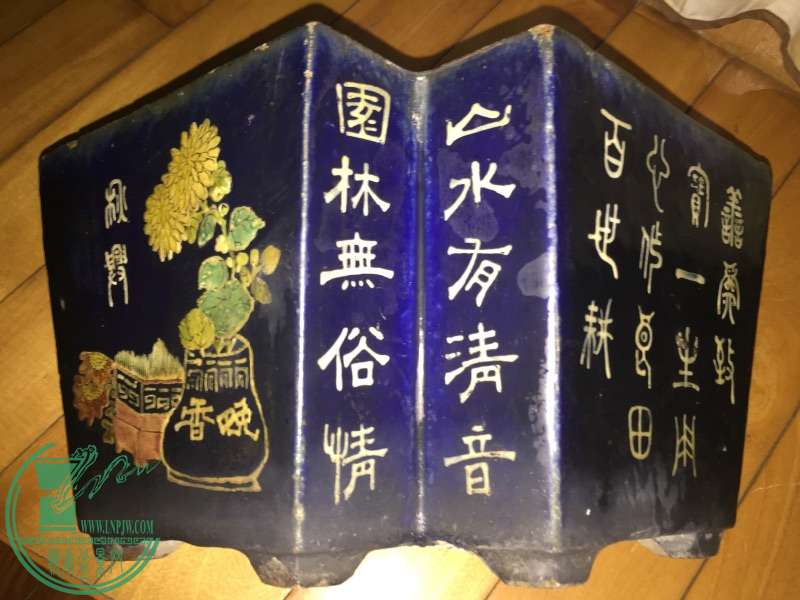 善爲致
寶一生用
心作良田
百世耕
山水有清音
園林無俗情
秋
晚香
WWW.LNPJW.COM